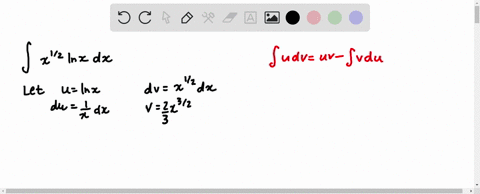 ∫ x^{1/2} ln x dx
∫udv = uv − ∫vdu
Let u = ln x dv = x^{1/2} dx
du = 1/x dx v = 2/3 x^{3/2}